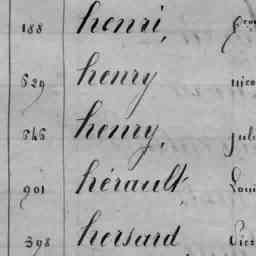 188 henri,
629 henry nico
646 henry, juli
901 hérault, Loui
398 hersard